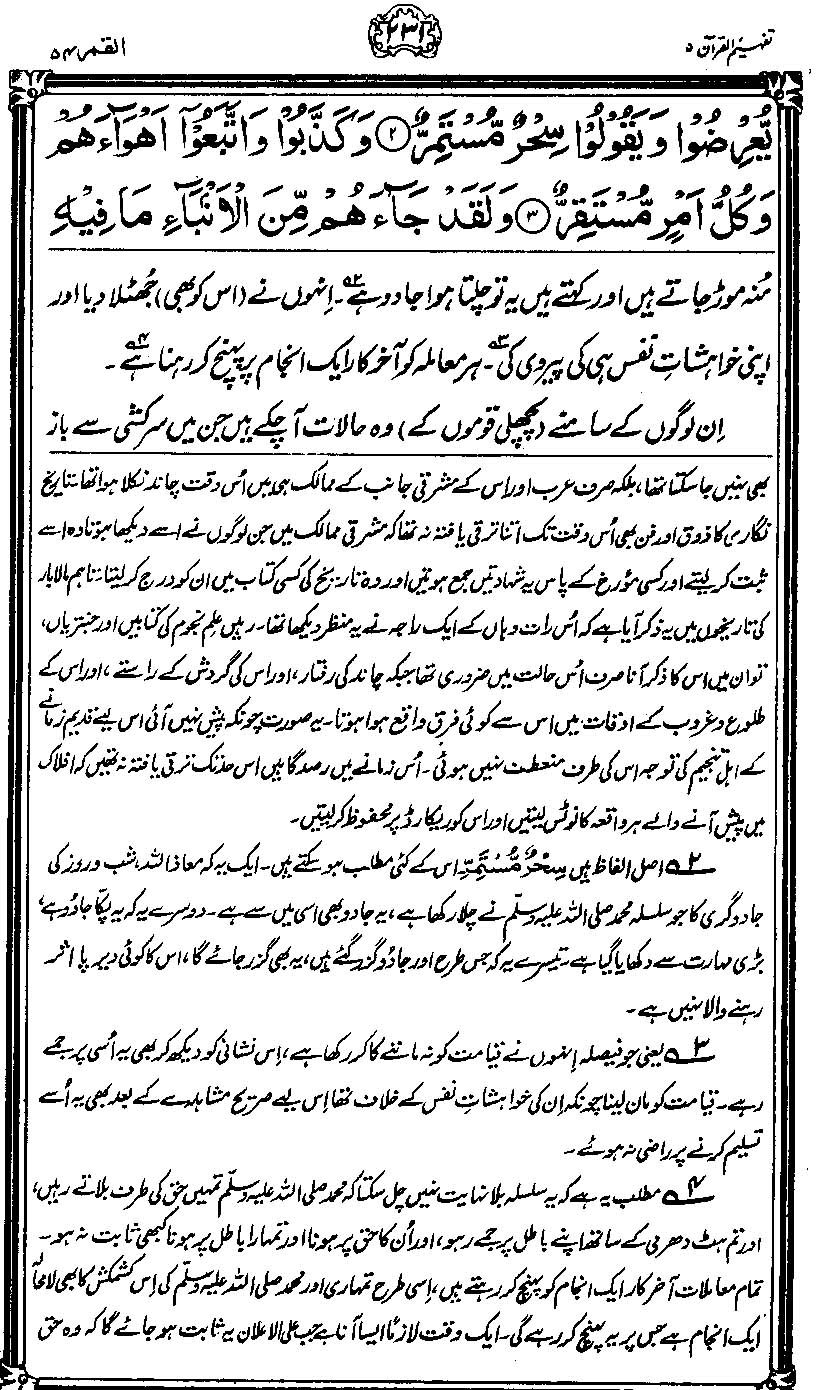 تفہیم القرآن ۵
۲۳۱
القمر ۵۴
يُّعْرِضُوْا وَيَقُوْلُوْا سِحْرٌ مُّسْتَمِرٌّ ۲ وَكَذَّبُوْا وَاتَّبَعُوْٓا اَهْوَآءَهُمْ
وَكُلُّ اَمْرٍ مُّسْتَقِرٌّ ۳ وَلَقَدْ جَآءَهُمْ مِّنَ الْاَنْۢبَآءِ مَا فِيْهِ
مُنہ موڑ جاتے ہیں اور کہتے ہیں یہ تو چلتا ہوا جادو ہے۲۔ اِنہوں نے (اس کو بھی) جُھٹلا دیا اور
اپنی خواہشاتِ نفس ہی کی پیروی کی۳۔ ہر معاملہ کو آخر کار ایک انجام پر پہنچ کر رہنا ہے۴۔
اِن لوگوں کے سامنے (پچھلی قوموں کے) وہ حالات آ چکے ہیں جن میں سرکشی سے باز
بھی نہیں جا سکتا تھا، بلکہ صرف عرب اور اس کے مشرقی جانب کے ممالک ہی میں اُس وقت چاند نکلا ہوا تھا۔ تاریخ
نگاری کا ذوق اور فن بھی اُس وقت تک اتنا ترقی یافتہ نہ تھا کہ مشرقی ممالک میں جن لوگوں نے اسے دیکھا ہوتا وہ اسے
ثبت کر لیتے اور کسی مؤرخ کے پاس یہ شہادتیں جمع ہوتیں اور وہ تاریخ کی کسی کتاب میں ان کو درج کر لیتا۔ تاہم مالابار
کی تاریخوں میں یہ ذکر آیا ہے کہ اُس رات وہاں کے ایک راجہ نے یہ منظر دیکھا تھا۔ رہیں علمِ نجوم کی کتابیں اور جنتریاں،
تو ان میں اس کا ذکر آنا صرف اُس حالت میں ضروری تھا جبکہ چاند کی رفتار، اور اس کی گردش کے راستے، اور اس کے
طلوع و غروب کے اوقات میں اس سے کوئی فرق واقع ہوا ہوتا۔ یہ صورت چونکہ پیش نہیں آئی اس لیے قدیم زمانے
کے اہل تنجیم کی توجہ اس کی طرف منعطف نہیں ہوئی۔ اُس زمانے میں رصد گاہیں اس حد تک ترقی یافتہ نہ تھیں کہ افلاک
میں پیش آنے والے ہر واقعہ کا نوٹس لیتیں اور اس کو ریکارڈ پر محفوظ کر لیتیں۔
۲ اصل الفاظ ہیں سِحْرٌ مُّسْتَمِرٌّ اس کے کئی مطلب ہو سکتے ہیں۔ ایک یہ کہ معاذ اللہ، شب و روز کی
جادوگری کا جو سلسلہ محمد صلی اللہ علیہ وسلّم نے چلا رکھا ہے، یہ جادو بھی اسی میں سے ہے۔ دوسرے یہ کہ یہ پکّا جادو ہے،
بڑی مہارت سے دکھایا گیا ہے۔ تیسرے یہ کہ جس طرح اور جادو گزر گئے ہیں، یہ بھی گزر جائے گا، اس کا کوئی دیر پا اثر
رہنے والا نہیں ہے۔
۳ یعنی جو فیصلہ اِنہوں نے قیامت کو نہ ماننے کا کر رکھا ہے، اِس نشانی کو دیکھ کر بھی یہ اُسی پر جمے
رہے۔ قیامت کو مان لینا چونکہ اِن کی خواہشاتِ نفس کے خلاف تھا اِس لیے صریح مشاہدے کے بعد بھی یہ اُسے
تسلیم کرنے پر راضی نہ ہوئے۔
۴ مطلب یہ ہے کہ یہ سلسلہ بلا نہایت نہیں چل سکتا کہ محمد صلی اللہ علیہ وسلّم تمہیں حق کی طرف بلاتے رہیں،
اور تم ہٹ دھرمی کے ساتھ اپنے باطل پر جمے رہو، اور اُن کا حق پر ہونا اور تمہارا باطل پر ہونا کبھی ثابت نہ ہو۔
تمام معاملات آخر کار ایک انجام کو پہنچ کر رہتے ہیں، اِسی طرح تمہاری اور محمد صلی اللہ علیہ وسلّم کی اِس کشمکش کا بھی لامحالہ
ایک انجام ہے جس پر یہ پہنچ کر رہے گی۔ ایک وقت لازمًا ایسا آنا ہے جب علی الاعلان یہ ثابت ہو جائے گا کہ وہ حق